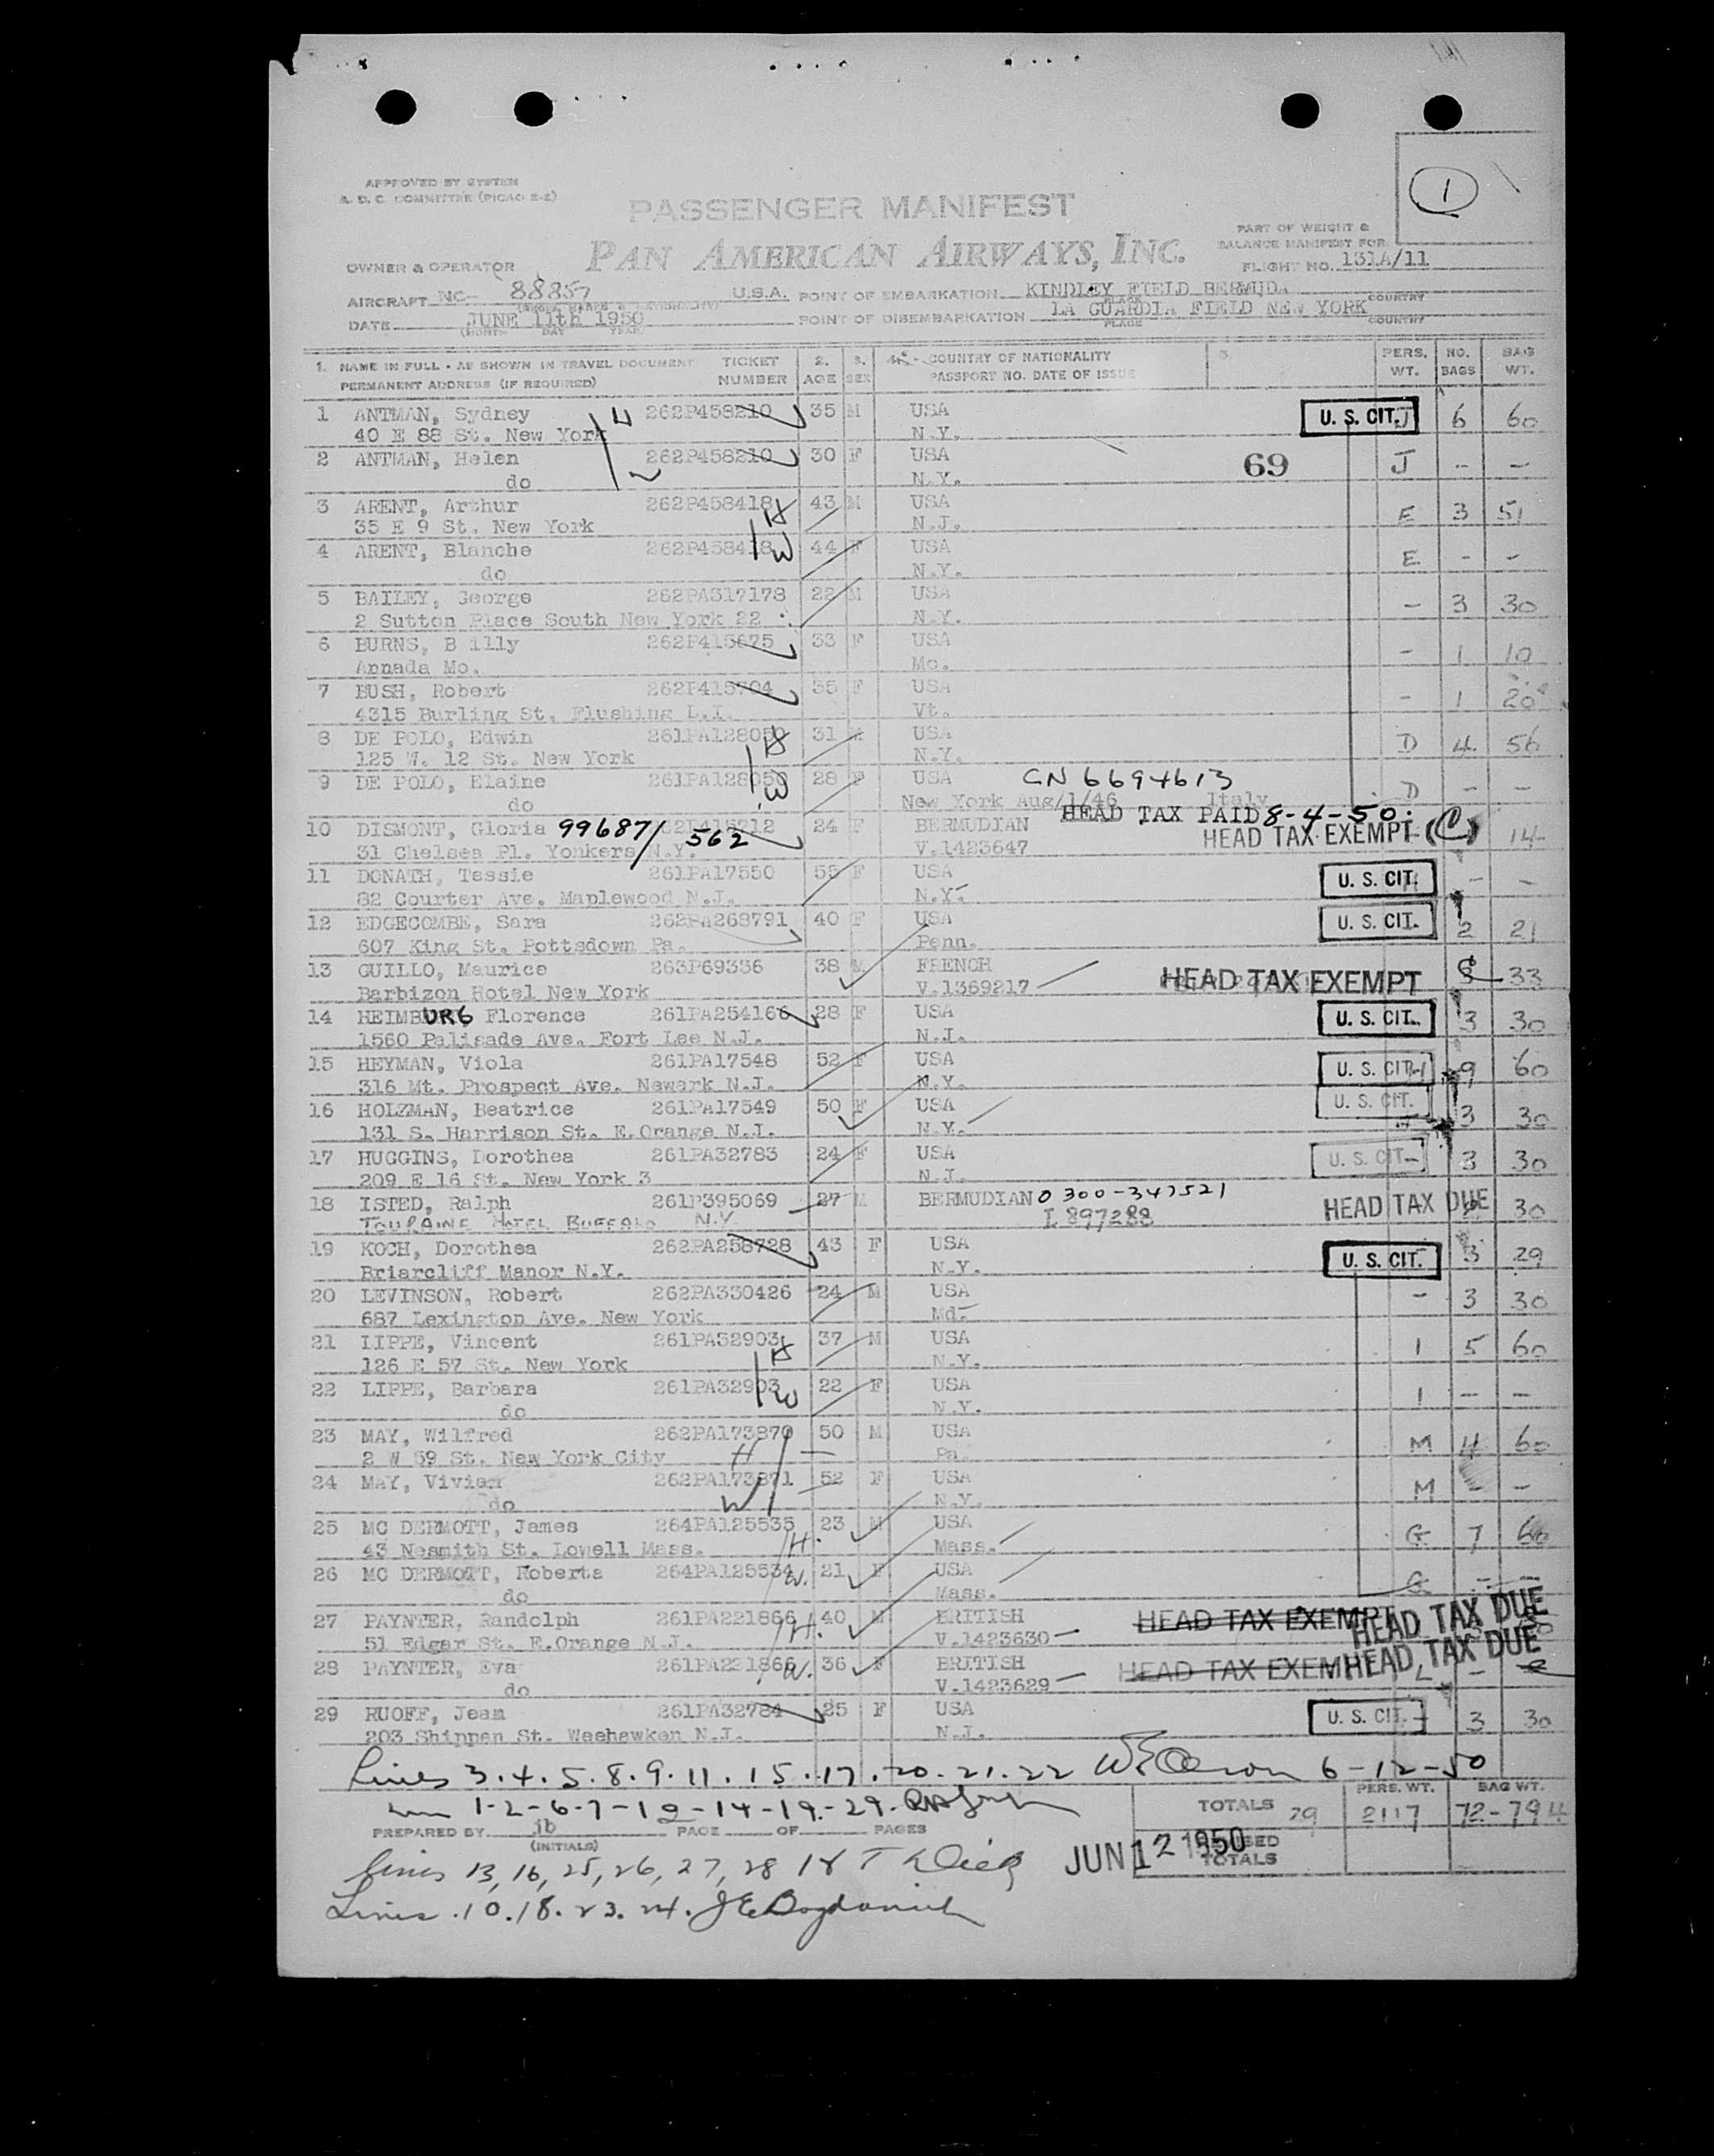 1
APPROVED BY SYSTEM
A. D. C. COMMITTEE (PICAO 2-2)
PASSENGER MANIFEST
PAN AMERICAN AIRWAYS, INC.
PART OF WEIGHT &
BALANCE MANIFEST FOR
FLIGHT NO. 131A/11
OWNER & OPERATOR
AIRCRAFT NC- 88857 U.S.A. POINT OF EMBARKATION KINDLEY FIELD BERMUDA
PLACE COUNTRY
DATE JUNE 11th 1950 POINT OF DISEMBARKATION LA GUARDIA FIELD NEW YORK
(MONTH DAY YEAR) PLACE COUNTRY
1. NAME IN FULL - AS SHOWN IN TRAVEL DOCUMENT TICKET 2. 3. COUNTRY OF NATIONALITY 5. PERS. NO. BAG
PERMANENT ADDRESS (IF REQUIRED) NUMBER AGE SEX PASSPORT NO. DATE OF ISSUE WT. BAGS WT.
1 ANTMAN, Sydney H 262P458210 35 M USA U. S. CIT. J 6 60
40 E 88 St. New York N.Y.
2 ANTMAN, Helen 262P458210 30 F USA 69 J - -
do N.Y.
3 ARENT, Arthur 262P458418 H 43 M USA E 3 51
35 E 9 St. New York N.J.
4 ARENT, Blanche 262P458418 W 44 F USA E - -
do N.Y.
5 BAILEY, George 262PA317178 22 M USA - 3 30
2 Sutton Place South New York 22 N.Y.
6 BURNS, B illy 262P415675 33 F USA - 1 10
Annada Mo. Mo.
7 BUSH, Robert 262P415704 35 F USA - 1 20
4315 Burling St. Flushing L.I. Vt.
8 DE POLO, Edwin 261PA128050 H 31 M USA D 4 56
125 W. 12 St. New York N.Y.
9 DE POLO, Elaine 261PA128050 W 28 F USA CN 6694613 D - -
do New York Aug/1/46 Italy
HEAD TAX PAID 8-4-50.
10 DISMONT, Gloria 99687/562 262P415212 24 F BERMUDIAN HEAD TAX EXEMPT (C) 14
31 Chelsea Pl. Yonkers N.Y. V.1423647
11 DONATH, Tessie 261PA17550 55 F USA U. S. CIT. - -
82 Courter Ave. Maplewood N.J. N.Y.
12 EDGECOMBE, Sara 262PA268791 40 F USA U. S. CIT. 2 21
607 King St. Pottsdown Pa. Penn.
13 GUILLO, Maurice 263P69336 38 M FRENCH HEAD TAX EXEMPT 33
Barbizon Hotel New York V.1369217
14 HEIMBURG, Florence 261PA254166 28 F USA U. S. CIT. 3 30
1560 Palisade Ave. Fort Lee N.J. N.J.
15 HEYMAN, Viola 261PA17548 52 F USA U. S. CIT. 9 60
316 Mt. Prospect Ave. Newark N.J. N.Y.
16 HOLZMAN, Beatrice 261PA17549 50 F USA U. S. CIT. 3 30
131 S. Harrison St. E.Orange N.J. N.Y.
17 HUGGINS, Dorothea 261PA32783 24 F USA U. S. CIT. 3 30
209 E 16 St. New York 3 N.J.
18 ISTED, Ralph 261P395069 27 M BERMUDIAN 0 300-347521 HEAD TAX DUE 30
TOURAINE HOTEL BUFFALO N.Y. I 897288
19 KOCH, Dorothea 262PA258728 43 F USA U. S. CIT. 3 29
Briarcliff Manor N.Y. N.Y.
20 LEVINSON, Robert 262PA330426 24 M USA - 3 30
687 Lexington Ave. New York Md.
21 LIPPE, Vincent 261PA32903 H 37 M USA I 5 60
126 E 57 St. New York N.Y.
22 LIPPE, Barbara 261PA32903 W 22 F USA I - -
do N.Y.
23 MAY, Wilfred 262PA173870 50 M USA M 4 60
2 W 59 St. New York City H Pa.
24 MAY, Vivian 262PA173871 52 F USA M - -
do W N.Y.
25 MC DERMOTT, James 264PA125535 23 M USA G 7 60
43 Nesmith St. Lowell Mass. H. Mass.
26 MC DERMOTT, Roberta 264PA125534 W. 21 F USA G - -
do Mass.
27 PAYNTER, Randolph 261PA221866 40 M BRITISH HEAD TAX EXEMPT HEAD TAX DUE
51 Edgar St. E.Orange N.J. H. V.1423630
28 PAYNTER, Eva 261PA221866 W. 36 F BRITISH HEAD TAX EXEM HEAD TAX DUE L -
do V.1423629
29 RUOFF, Jean 261PA32784 25 F USA U. S. CIT. - 3 30
203 Shippen St. Weehawken N.J. N.J.
Lines 3.4.5.8.9.11.15.17.20.21.22 6-12-50
1-2-6-7-12-14-19-29.
PERS. WT. BAG WT.
TOTALS 29 2117 72-794
PREPARED BY jb PAGE OF PAGES
(INITIALS)
JUN 12 1950
TOTALS
Lines 13, 16, 25, 26, 27, 28
Lines 10.18.23.24. J E Bogdanich